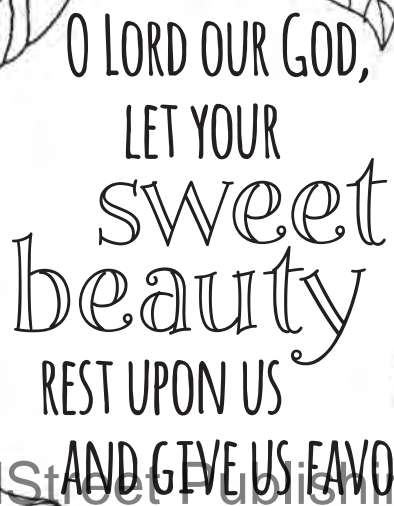 O Lord our God,
let your
sweet
beauty
rest upon us
and give us favo
Street Publishi